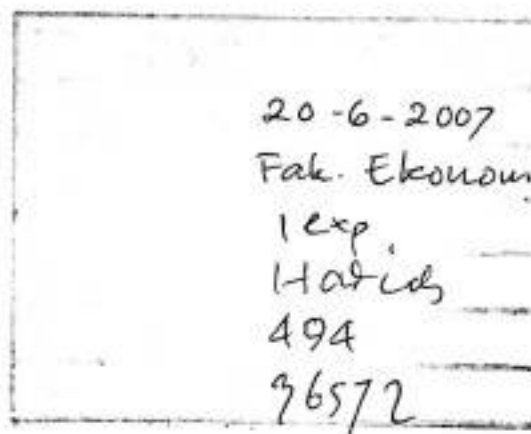 20-6-2007
Fak. Ekonom
1 exp
Hadiah
494
36572